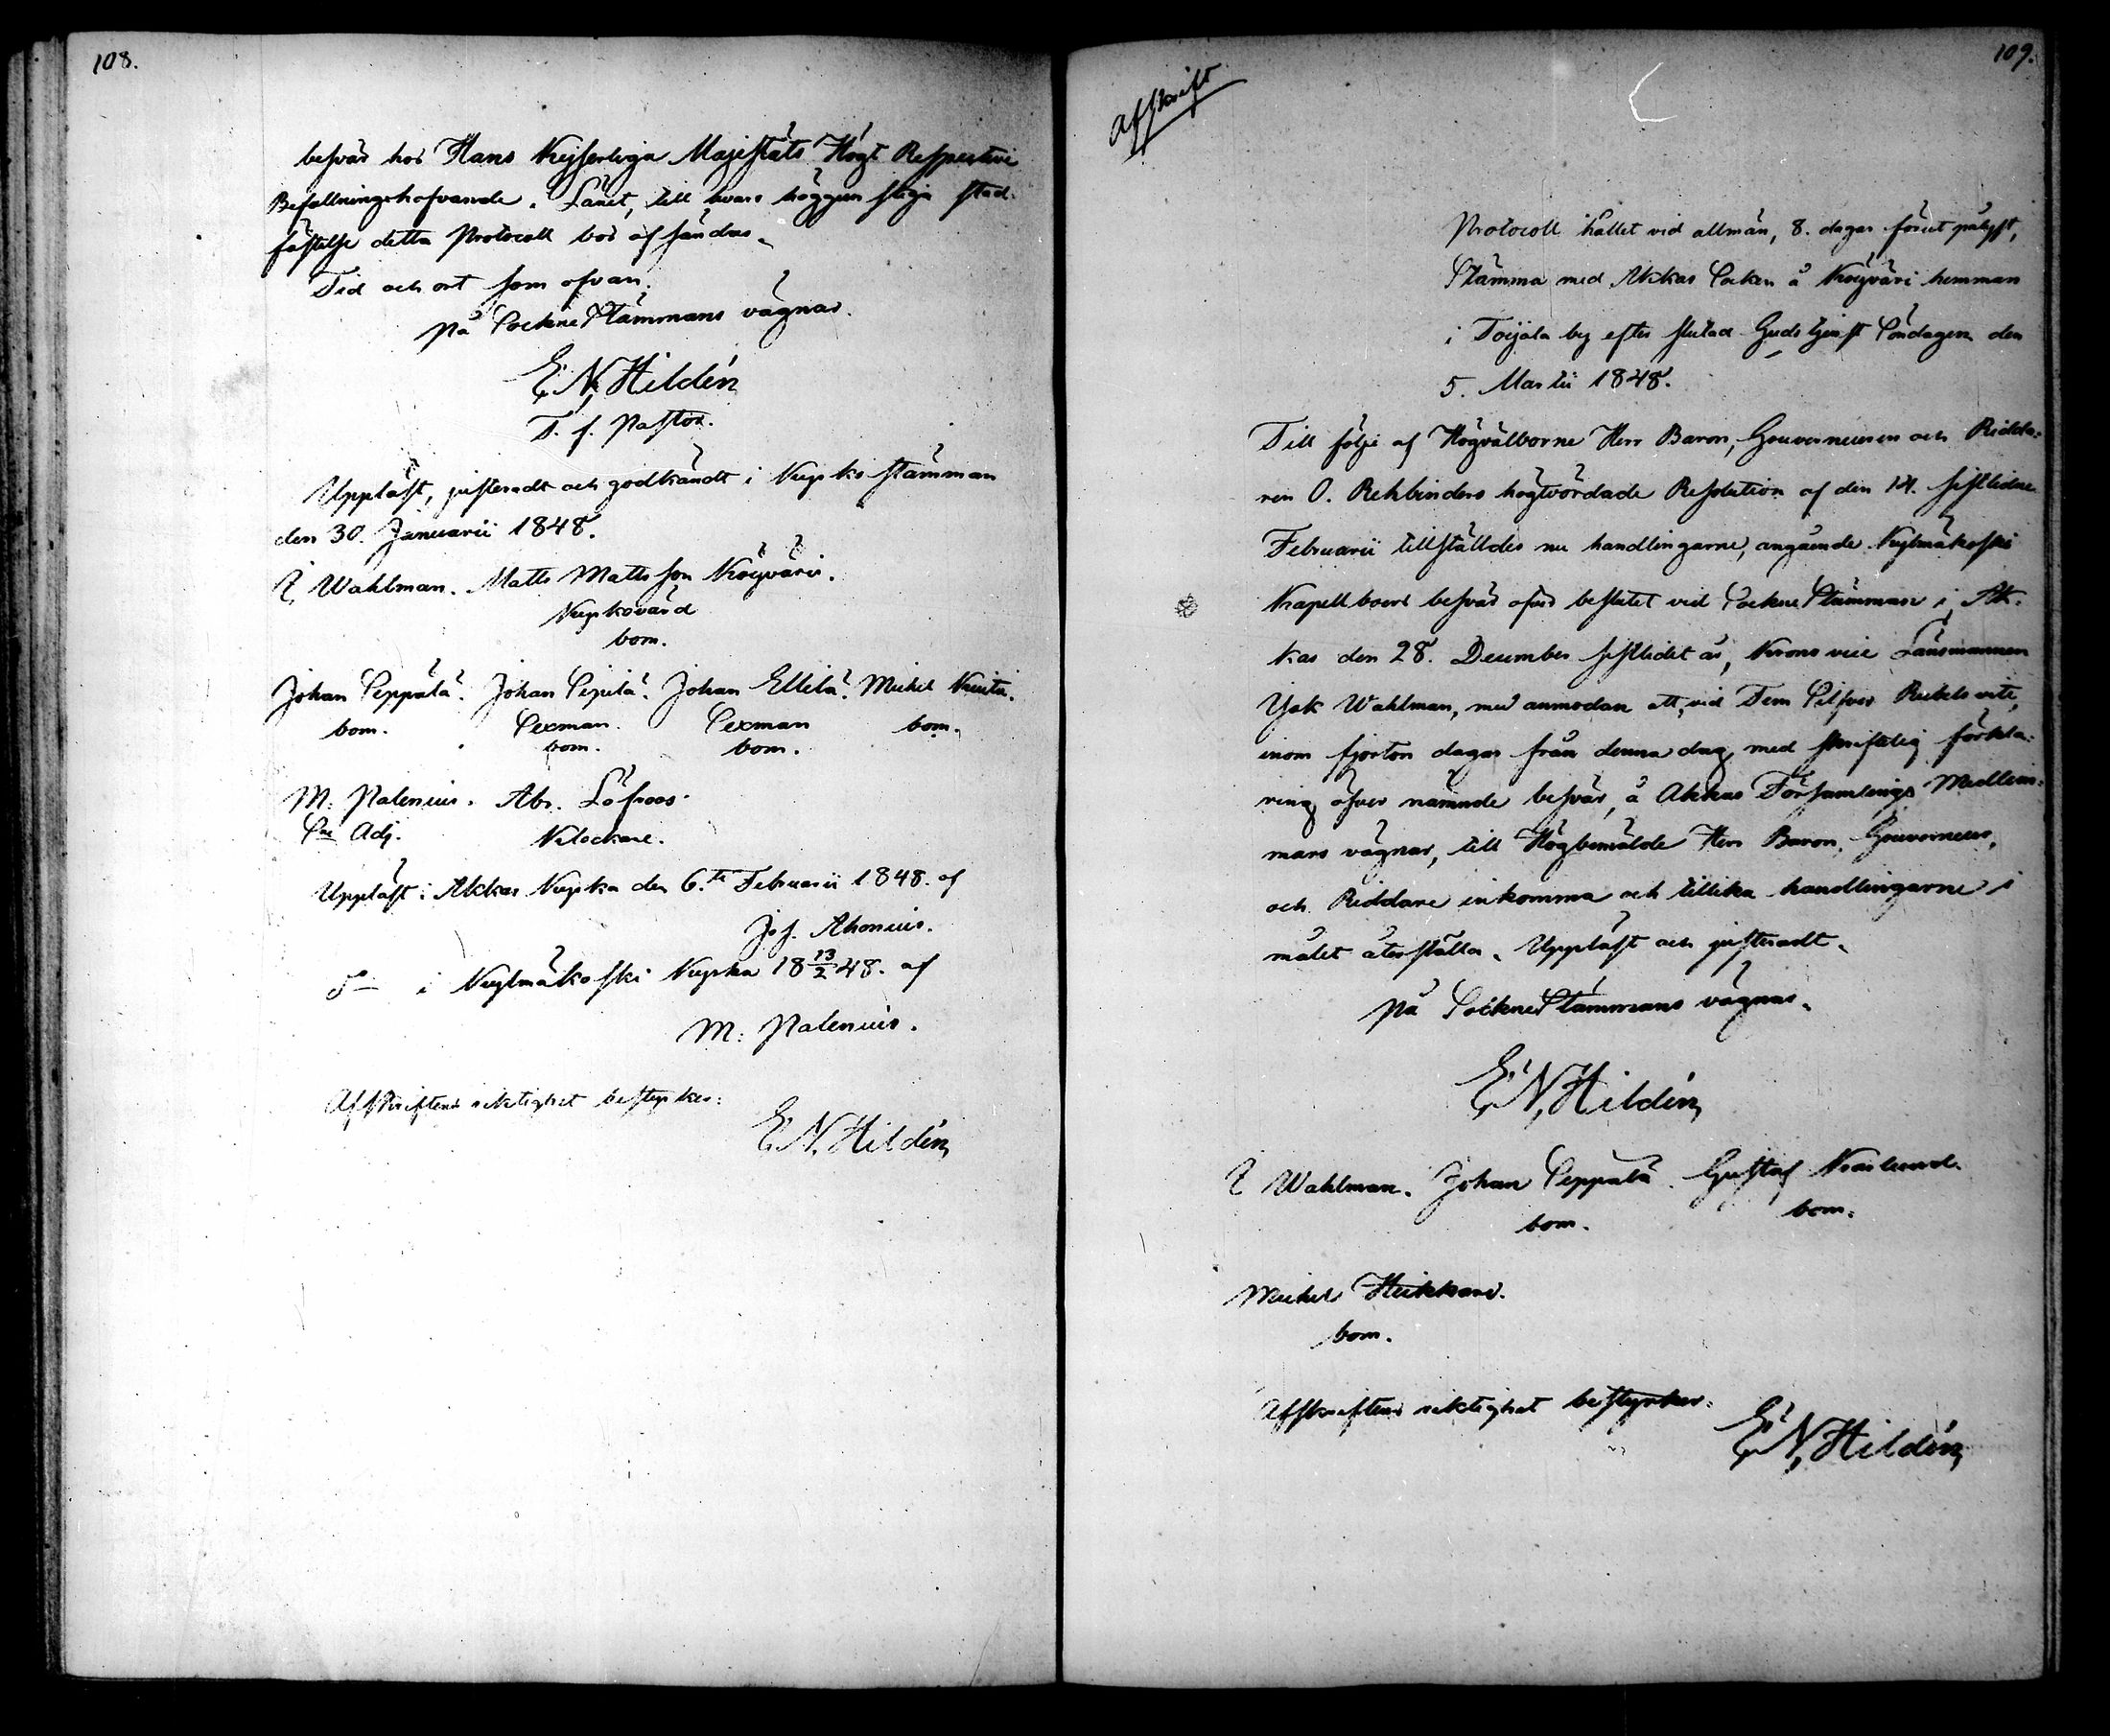 108.
besvär hos Hans Kejserliga Majestäts Högt Respective
Befallningshafvande i Länet, till hvars höggunstliga stad-
fästelse detta Protocoll bör afsändas.
Tid och ort som ofvan.
På SockneStämmans vägnar.
E. N. Hildén
T. f. Pastor.
Uppläst, justeradt och godkändt i Kyrkostämman
den 30. Januarii 1848.
J. Wahlman. Matts Mattsson Köyväri.
Kyrkovärd
bom.
Johan Seppälä. Johan Sipilä. Johan Ellilä. Michel
bom. Sexman. Sexman bom.
bom. bom.
M: Palenius. Abr. Löfroos.
Sne Adj. Klockare.
Uppläst i Akkas Kyrka den 6.te Februarii 1848. af
Jos. Ahonius.
d:o i Kylmäkoski Kyrka 18 13/2 48. af
M: Palenius.
Afskriftens riktighet bestyrker:
E. N. Hildén
109.
Afskrift
Protocoll hållet vid allmän, 8. dagar förut pålyst,
Stämma med Akkas Socken å Köyväri hemman
i Toijala by efter slutad Gudstjenst Söndagen den
5. Martii 1848.
Till följe af Högvälborne Herr Baron, Gouverneuren och Ridda-
ren O. Rehbinders högtvördade Resolution af den 14. sistlidne
Februarii tillställdes nu handlingarne, angående Kylmäkoski
Kapellboers besvär öfver beslutet vid SockneStämman i Ak-
kas den 28. December sistlidet år, Krono vice Länsmannen
Isak Wahlman, med anmodan att, vid Fem Silfver Rubels vite,
inom fjorton dagar från denna dag, med skriftelig förkla-
ring öfver nämnde besvär, å Akkas Församlings Medlem-
mars vägnar, till Högbemälde Herr Baron, Gouverneur,
och Riddare inkomma och tillika handlingarne i
målet återställa. Uppläst och justeradt.
På SockneStämmans vägnar.
E. N. Hildén
J. Wahlman. Johan Seppälä. Gustaf
bom. bom.
Michel Heikkari.
bom.
Afskriftens riktighet bestyrker:
E. N. Hildén